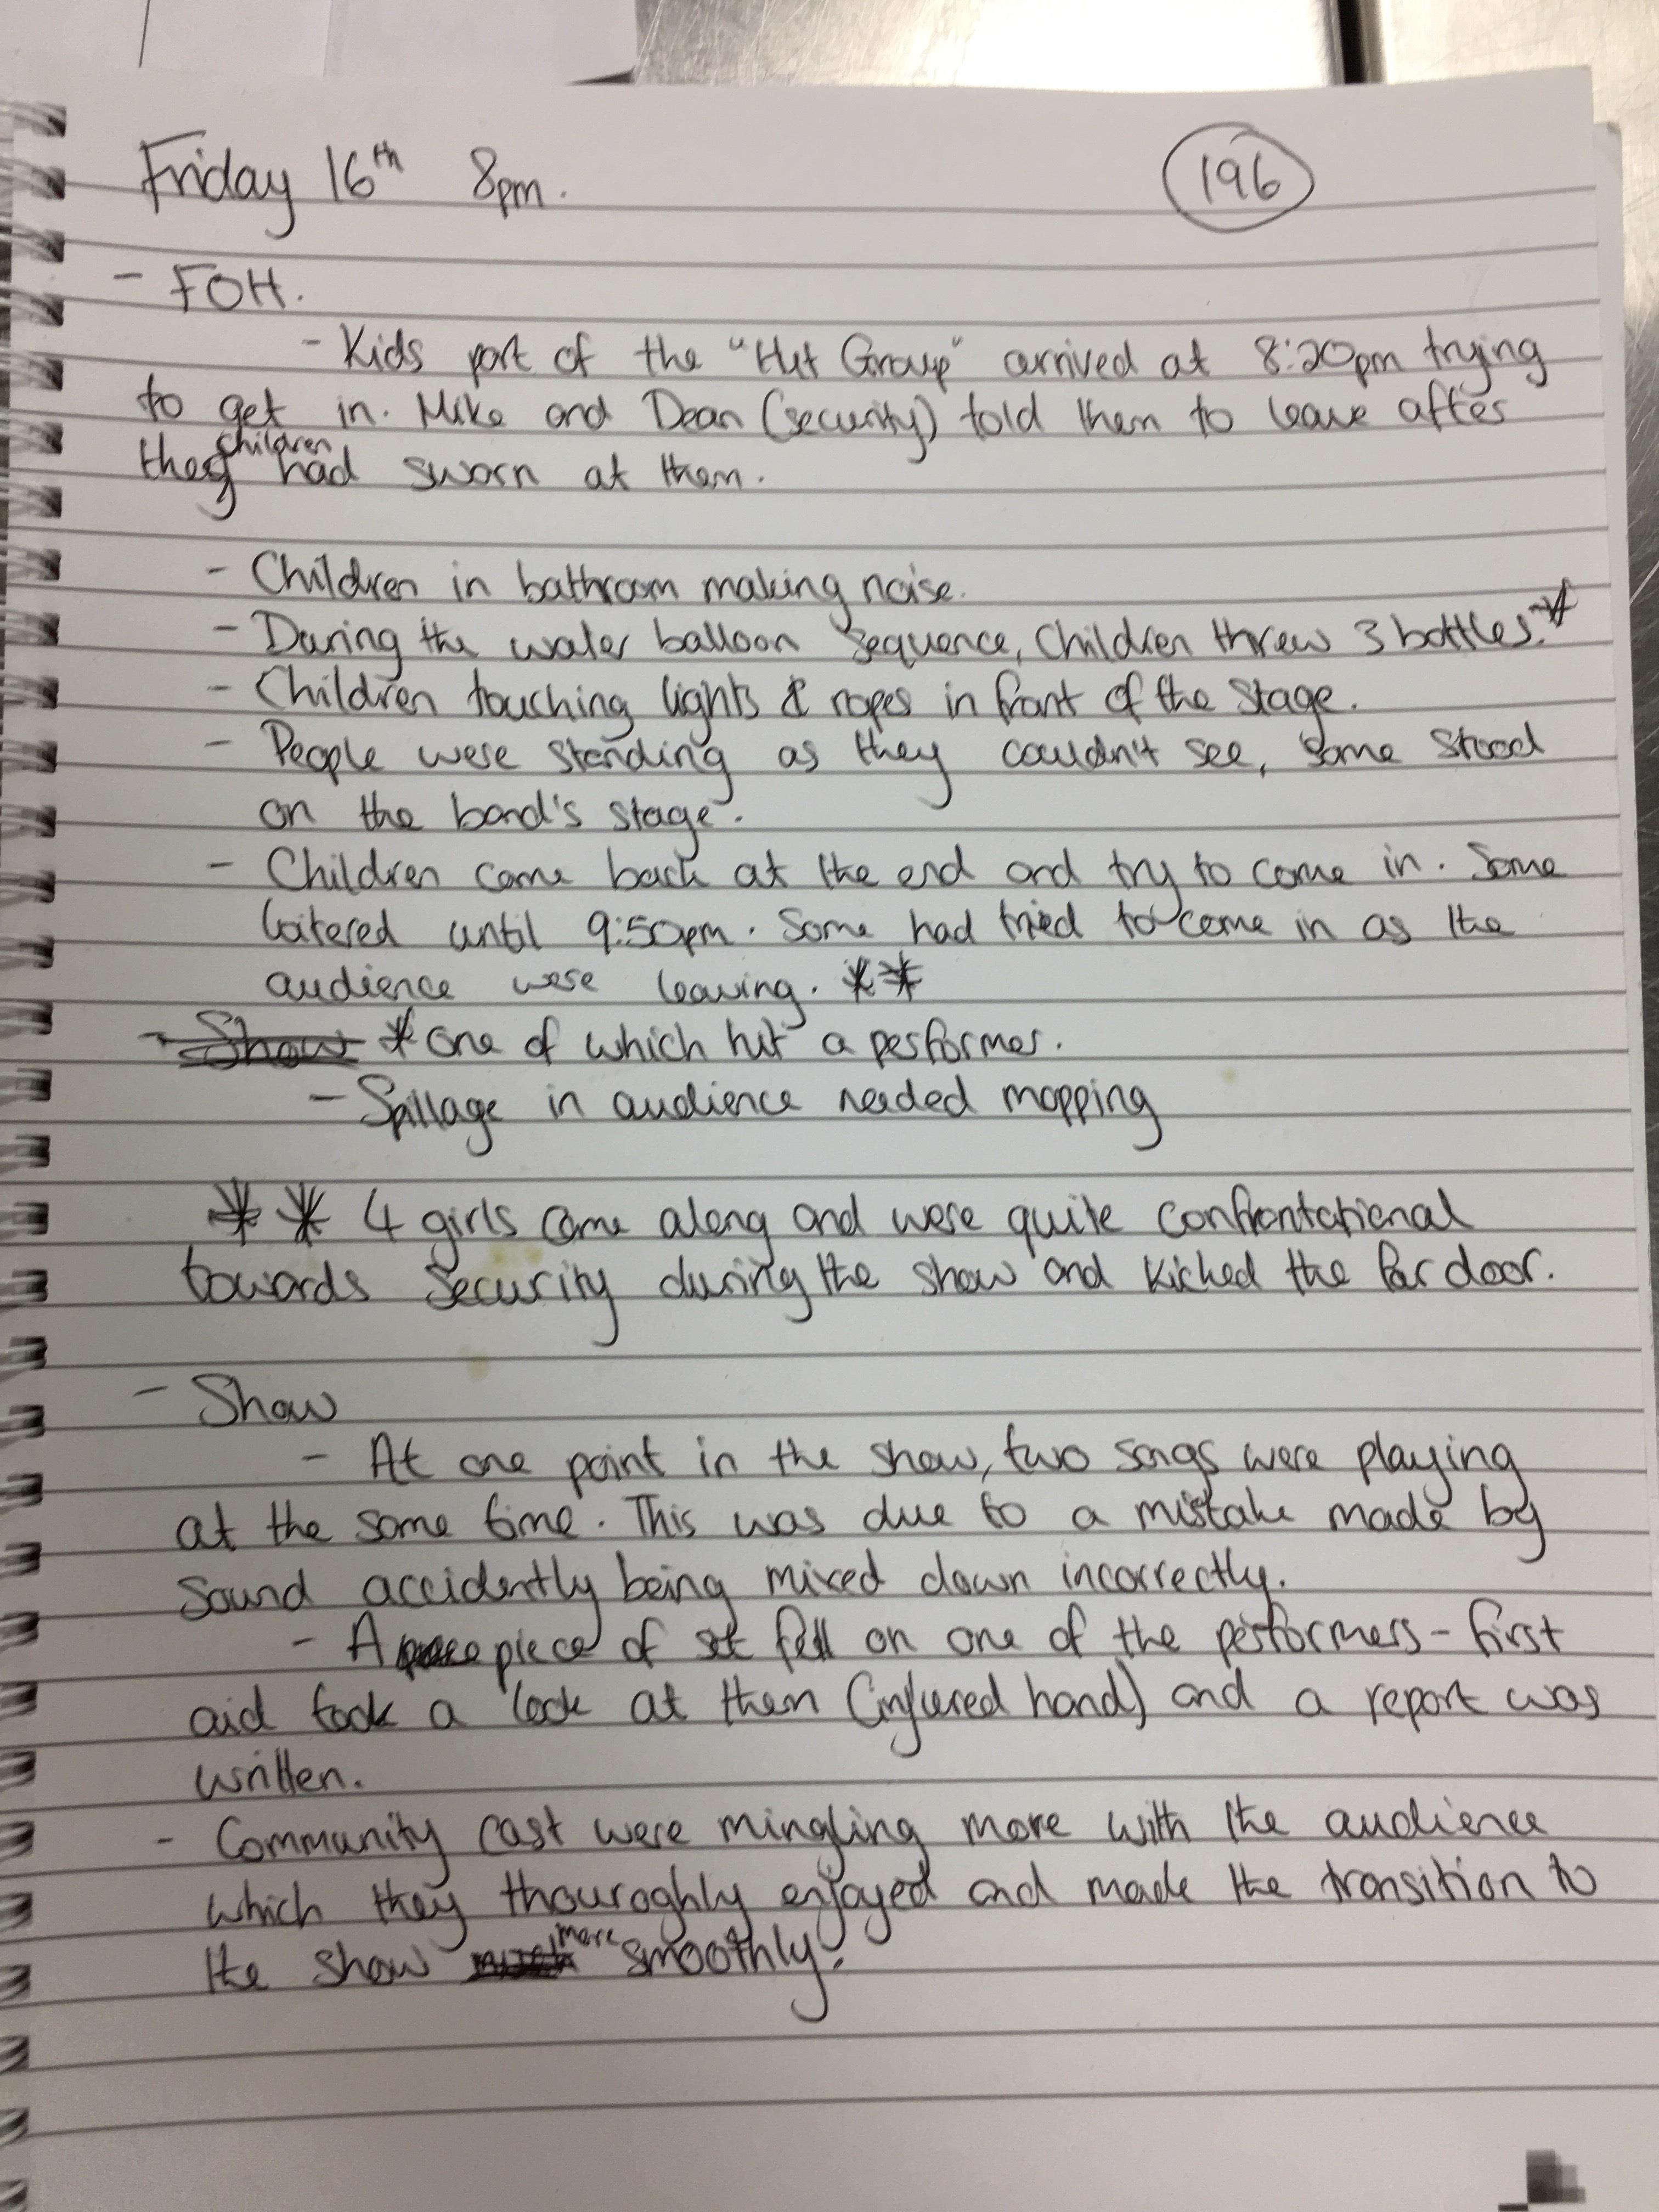 Friday 16th 8pm. 196
- FOH.
- Kids part of the "Hut Group" arrived at 8:20pm trying
to get in. Mike and Dean (security) told them to leave after
children
they had sworn at them.
- Children in bathroom making noise.
- During the water balloon sequence, Children threw 3 bottles.*
- Children touching lights & ropes in front of the stage.
- People were standing as they couldn't see, some stood
on the band's stage.
- Children came back at the end and try to come in. Some
loitered until 9:50pm. Some had tried to come in as the
audience were leaving. **
- Show * One of which hit a performer.
- Spillage in audience needed mopping
** 4 girls came along and were quite confrontational
towards security during the show and kicked the far door.
- Show
- At one point in the show, two songs were playing
at the same time. This was due to a mistake made by
sound accidently being mixed down incorrectly.
- A piece of set fell on one of the performers - first
aid took a look at them (injured hand) and a report was
written.
- Community cast were mingling more with the audience
which they thouroghly enjoyed and made the transition to
the show more smoothly.